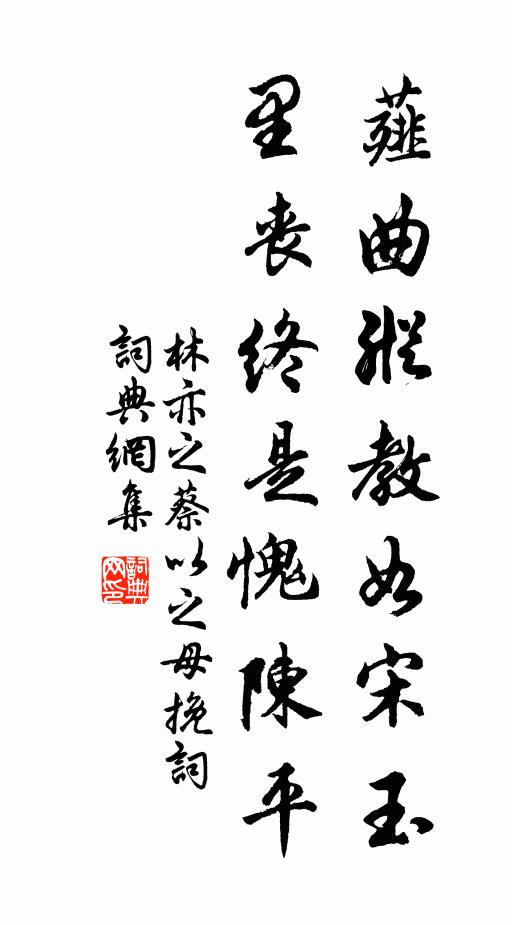 薤曲縱教如宋玉
里喪終是愧陳平
林亦之蔡以之母挽詞
詞典網集
詞典网印